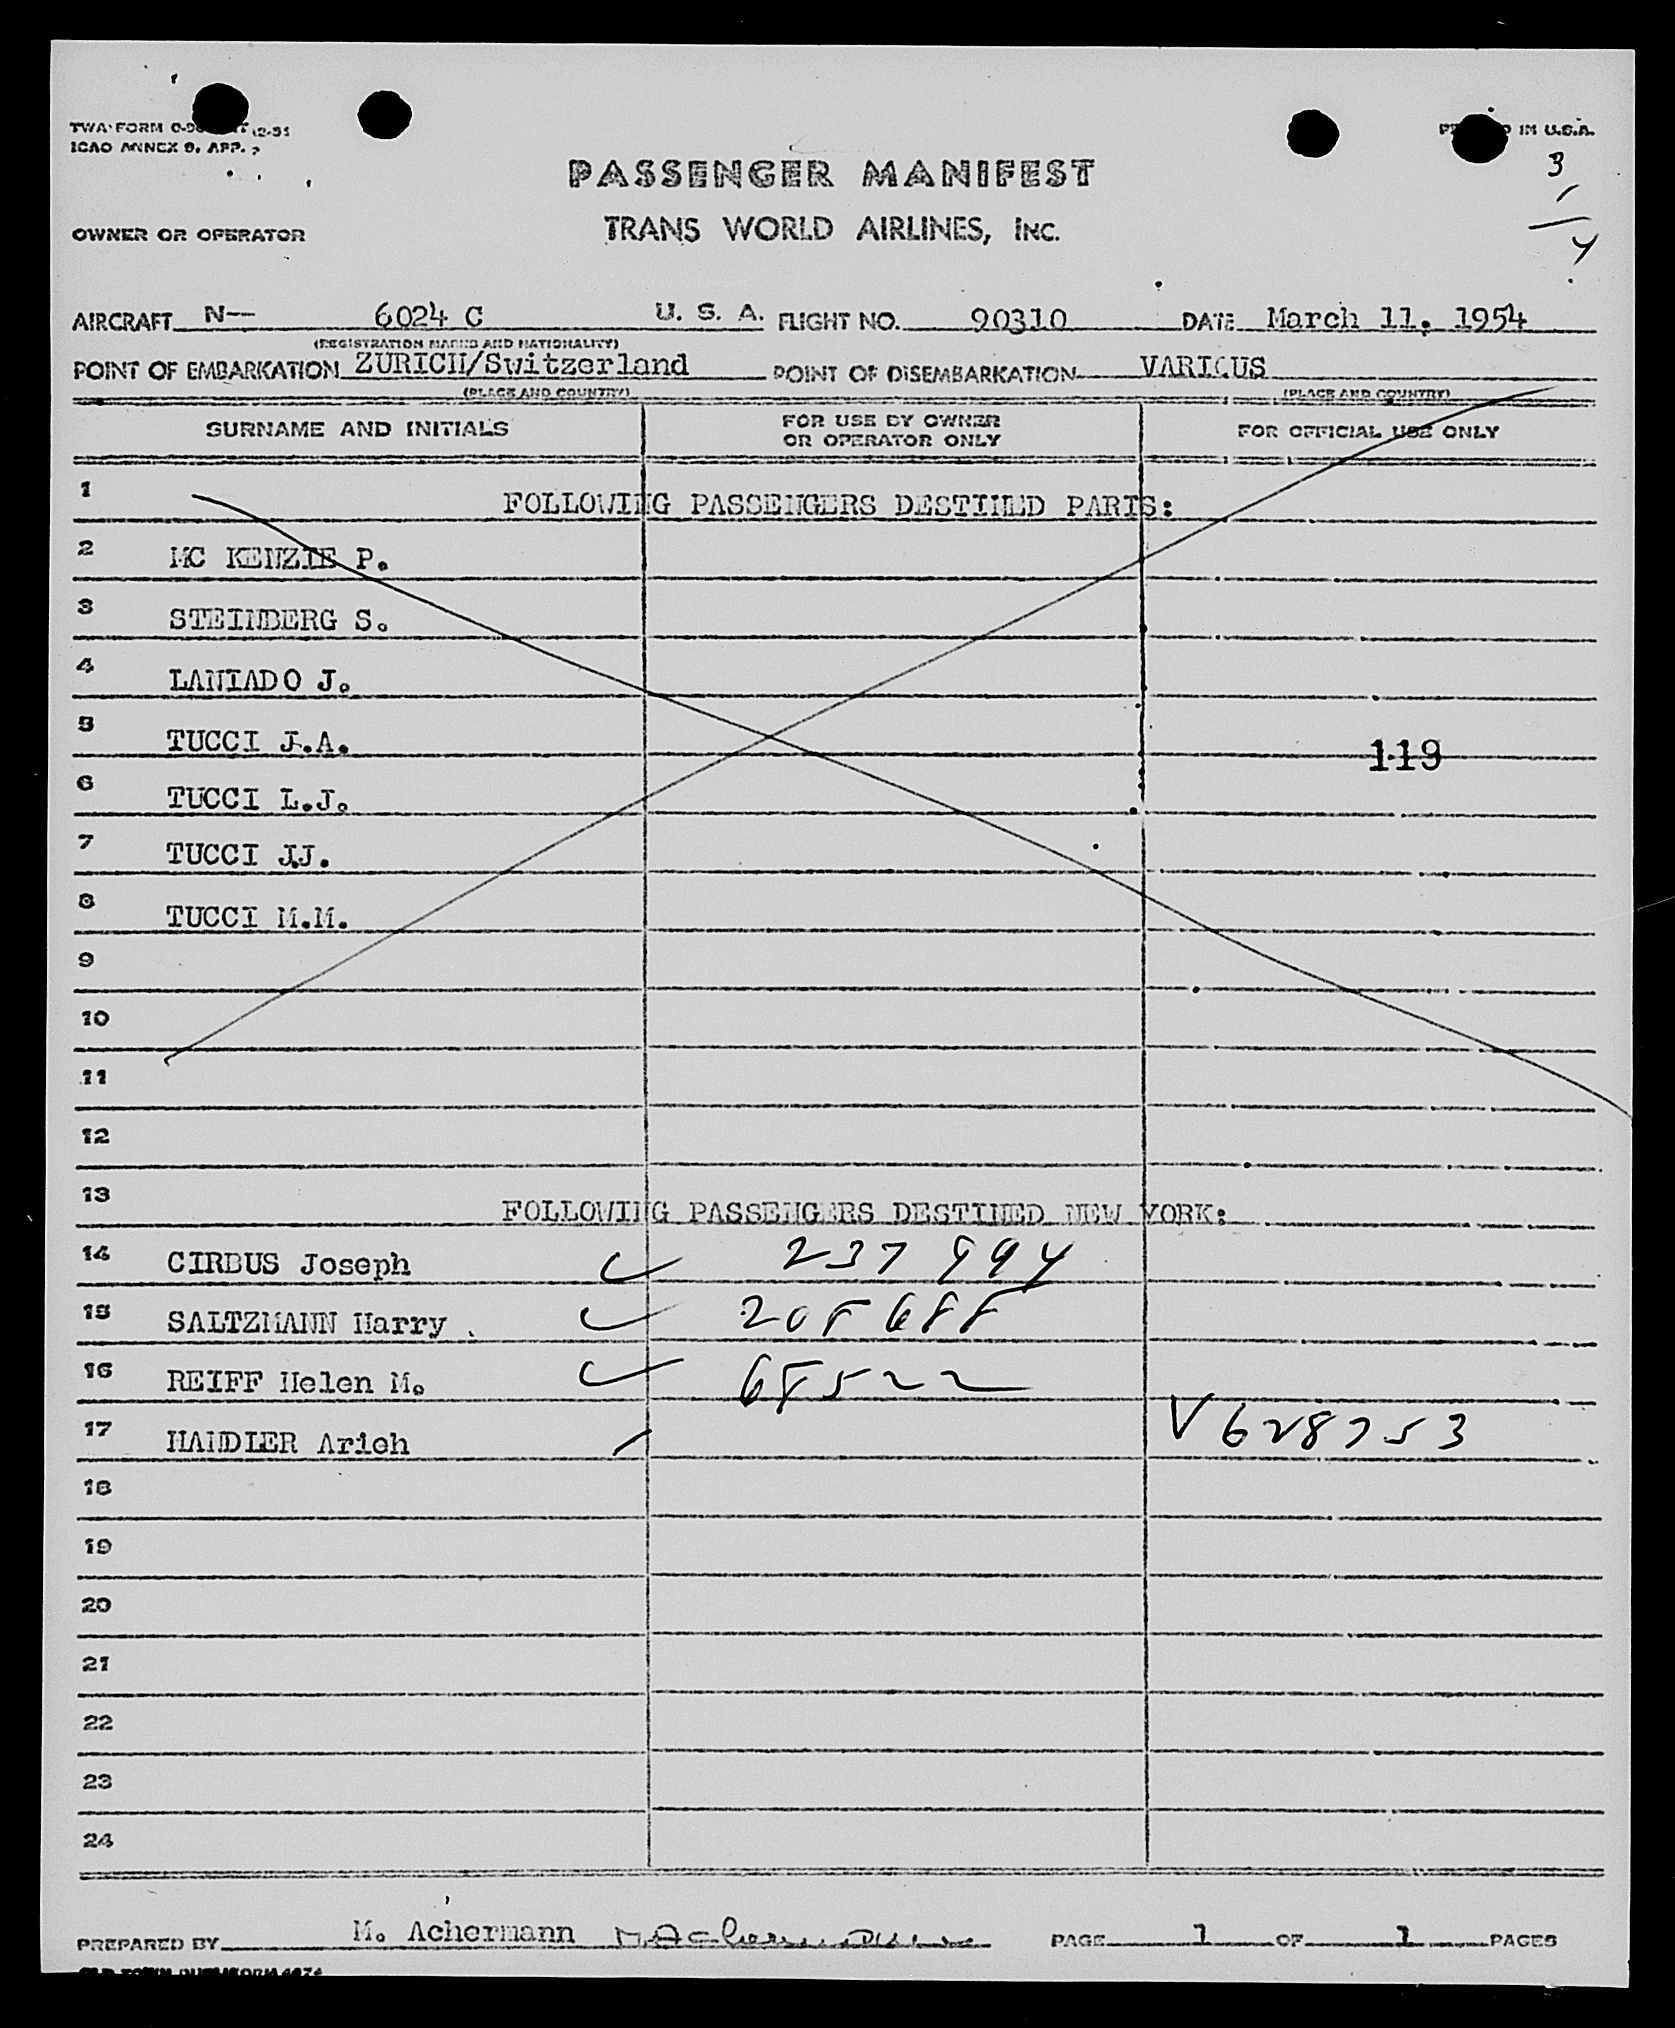 TWA FORM
PRINTED IN U.S.A.
ICAO ANNEX 9, APP.
3
/
4
PASSENGER MANIFEST
OWNER OR OPERATOR
TRANS WORLD AIRLINES, INC.
AIRCRAFT N— 6024 C U. S. A. FLIGHT NO. 90310 DATE March 11, 1954
(REGISTRATION MARKS AND NATIONALITY)
POINT OF EMBARKATION ZURICH/Switzerland POINT OF DISEMBARKATION VARIOUS
(PLACE AND COUNTRY) (PLACE AND COUNTRY)
SURNAME AND INITIALS FOR USE BY OWNER OR OPERATOR ONLY FOR OFFICIAL USE ONLY
1 FOLLOWING PASSENGERS DESTINED PARIS:
2 MC KENZIE P.
3 STEINBERG S.
4 LANIADO J.
5 TUCCI J.A. 119
6 TUCCI L.J.
7 TUCCI J.J.
8 TUCCI M.M.
9
10
11
12
13 FOLLOWING PASSENGERS DESTINED NEW YORK:
14 CIRBUS Joseph 237 994
15 SALTZMANN Harry 208 688
16 REIFF Helen M. 68522
17 HANDLER Arieh V 628753
18
19
20
21
22
23
24
PREPARED BY M. Achermann M Achermann PAGE 1 OF 1 PAGES